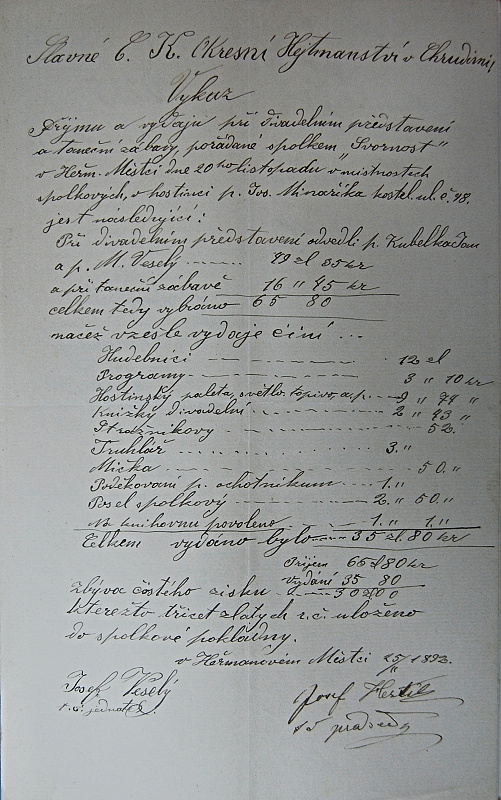 Slavné C. K. Okresní Hejtmanství v Chrudimi,
Výkaz
Příjmu a vydajů při divadelním představení
a taneční zábavy, pořádané spolkem „Svornost"
v Heřm. Městci dne 20ho listopadu v místnostech
spolkových, v hostinci p. Jos. Minaříka kostel. ul. č. 98.
jest následující:
Při divadelním představení odvedli p. Kubelka Jan
a p. M. Veselý ...... 49 zl 35 kr
a při taneční zábavě 16 „ 45 kr
celkem tedy vybráno 65 80
načež vzešle vydaje činí ...
Hudebníci 12 zl
Programy 3 „ 10 kr
Hostinský světlo, topivo, a. p. 9 „ 74 „
Knížky divadelní 2 „ 93 „
Strážníkovy 52.
Truhlář 3. „
Mička 50. „
Poděkovaní p. ochotníkum 1. „
Posel spolkový 2. „ 50. „
Na knihovnu povoleno 1. „ 1. „
Celkem vydáno bylo 35 zl. 80 kr
Příjem 65 zl 80 kr
vydání 35 80
Zbývá čistého zisku 30 zl 00
kterežto třicet zlatych r. č. uloženo
do spolkové pokladny.
v Heřmanovém Městci 25/11 1893.
Josef Veselý
t. č. jednatel.
Josef
t č předseda